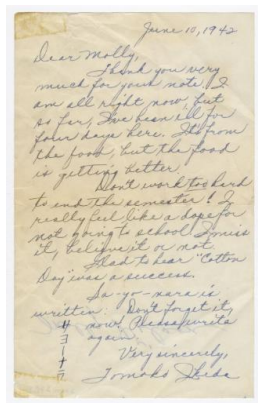 June 10, 1942
Dear Molly,
Thank you very
much for your note. I
am all right now, but
so far, I've been ill for
four days here. It's from
the food, but the food
is getting better.
Don't work too hard
to end the semester! I
really feel like a dope for
not going to school. I miss
it, believe it or not.
Glad to hear "Cotton
Day" was a success.
Sa-yo-nara is
written. Don't forget it,
now! Please write
again.
Very sincerely,
Tomoko Ikeda